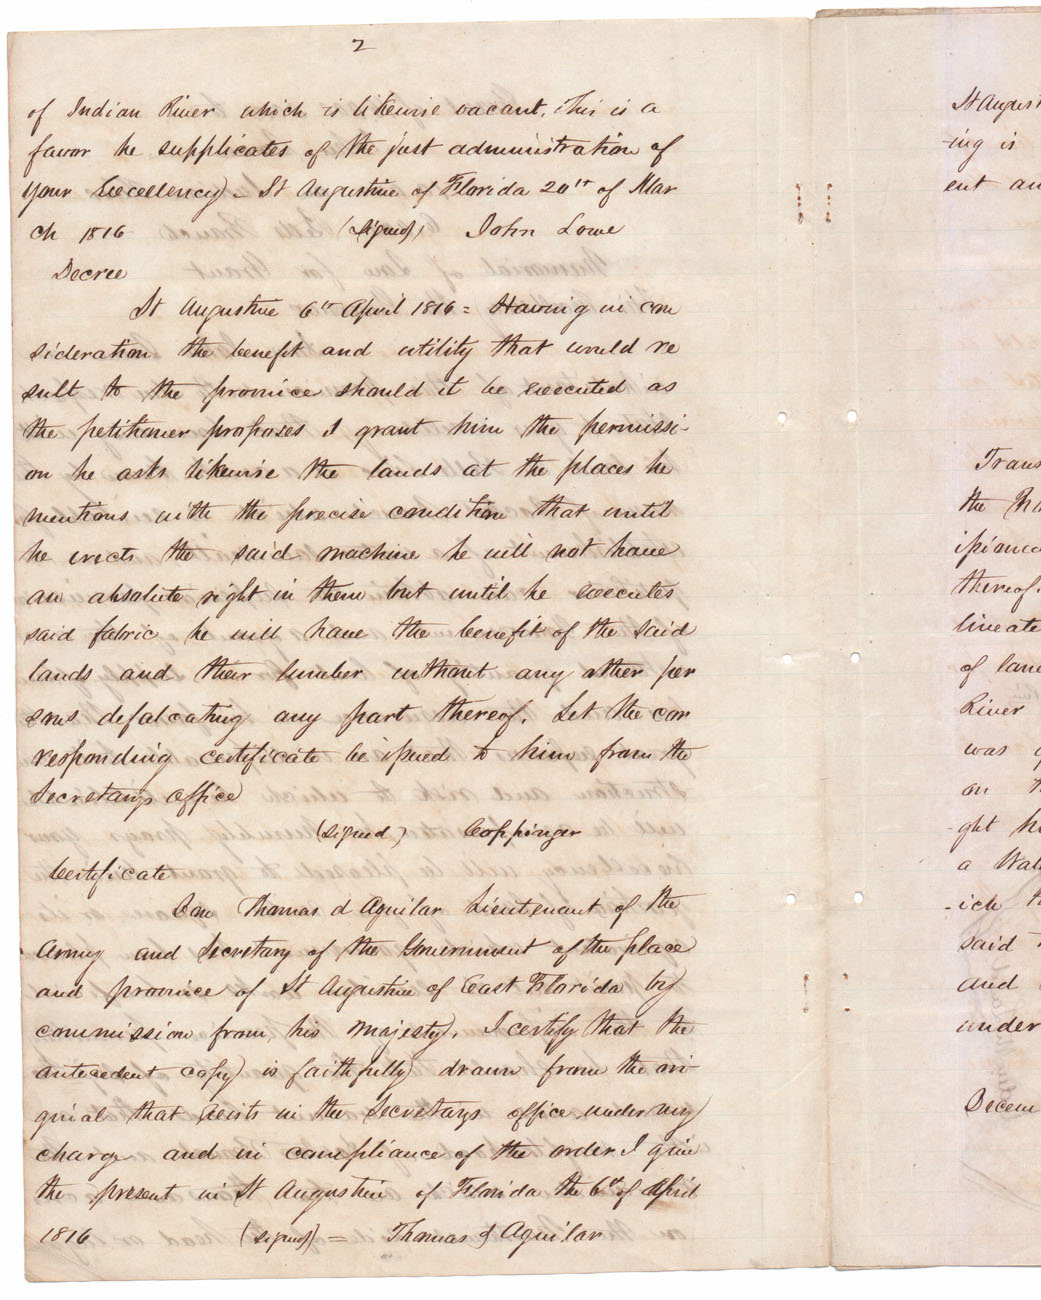 2
of Indian River which is likewise vacant. This is a
favor he supplicates of the just administration of
your Excellency) - St Augustine of Florida 20th of Mar
ch 1816 (Signed) John Lowe
Decree
St Augustine 6th April 1816 = Having in con
sideration the benefit and utility that would re
sult to the province should it be executed as
the petitioner proposes I grant him the permissi-
on he asks likewise the lands at the places he
mentions with the precise condition that until
he erects the said machine he will not have
an absolute right in them but until he executes
said fabric he will have the benefit of the said
lands and their lumber without any other per
sons defalcating any part thereof. Let the cor
responding certificate be issued to him from the
Secretarys office
(signed) Coppinger
Certificate
Don Thomas d Aguilar Lieutenant of the
Army and Secretary of the Government of the place
and province of St Augustine of East Florida by
commission from his majesty. I certify that the
antecedent copy is faithfully drawn from the ori
ginal that exists in the Secretarys office under my
charge and in compliance of the order I give
the present in St Augustine of Florida the 6th of April
1816 (signed) = Thomas d Aguilar
St August
-ing is
ent an
Trans
the
thereof.
lineate
of land
River
was
on
-ght
a
-ich
said
and
under
Decem